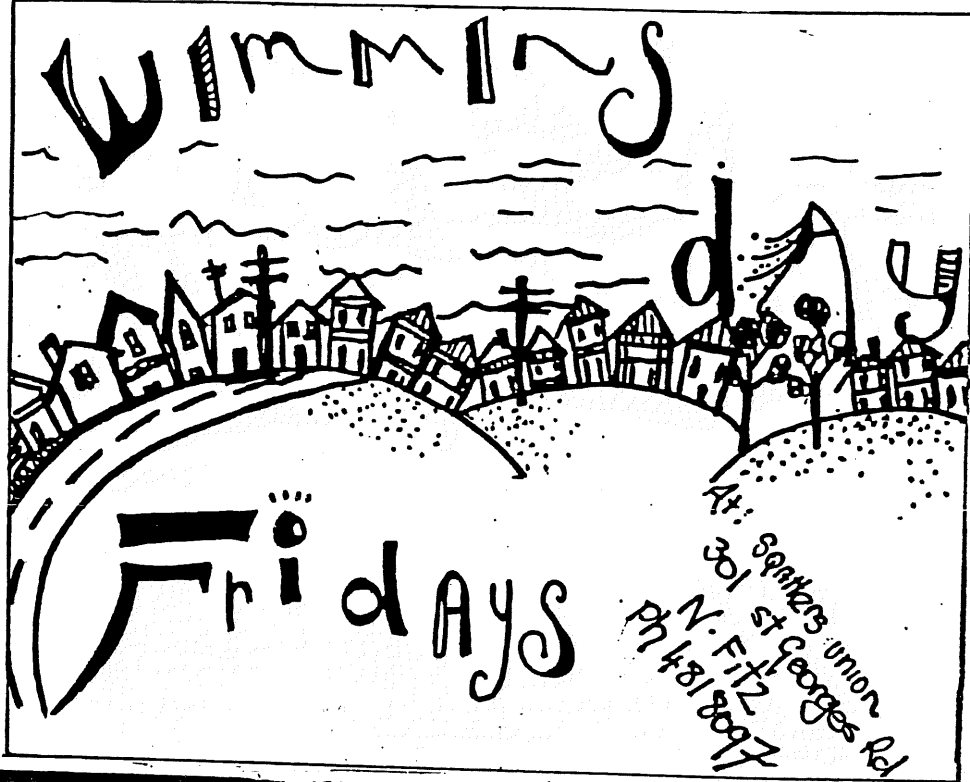 Wimmins
dAy
FridAys
At:
SQATTERS UNION
301 St Georges Rd
N. Fitz
Ph 481 8097